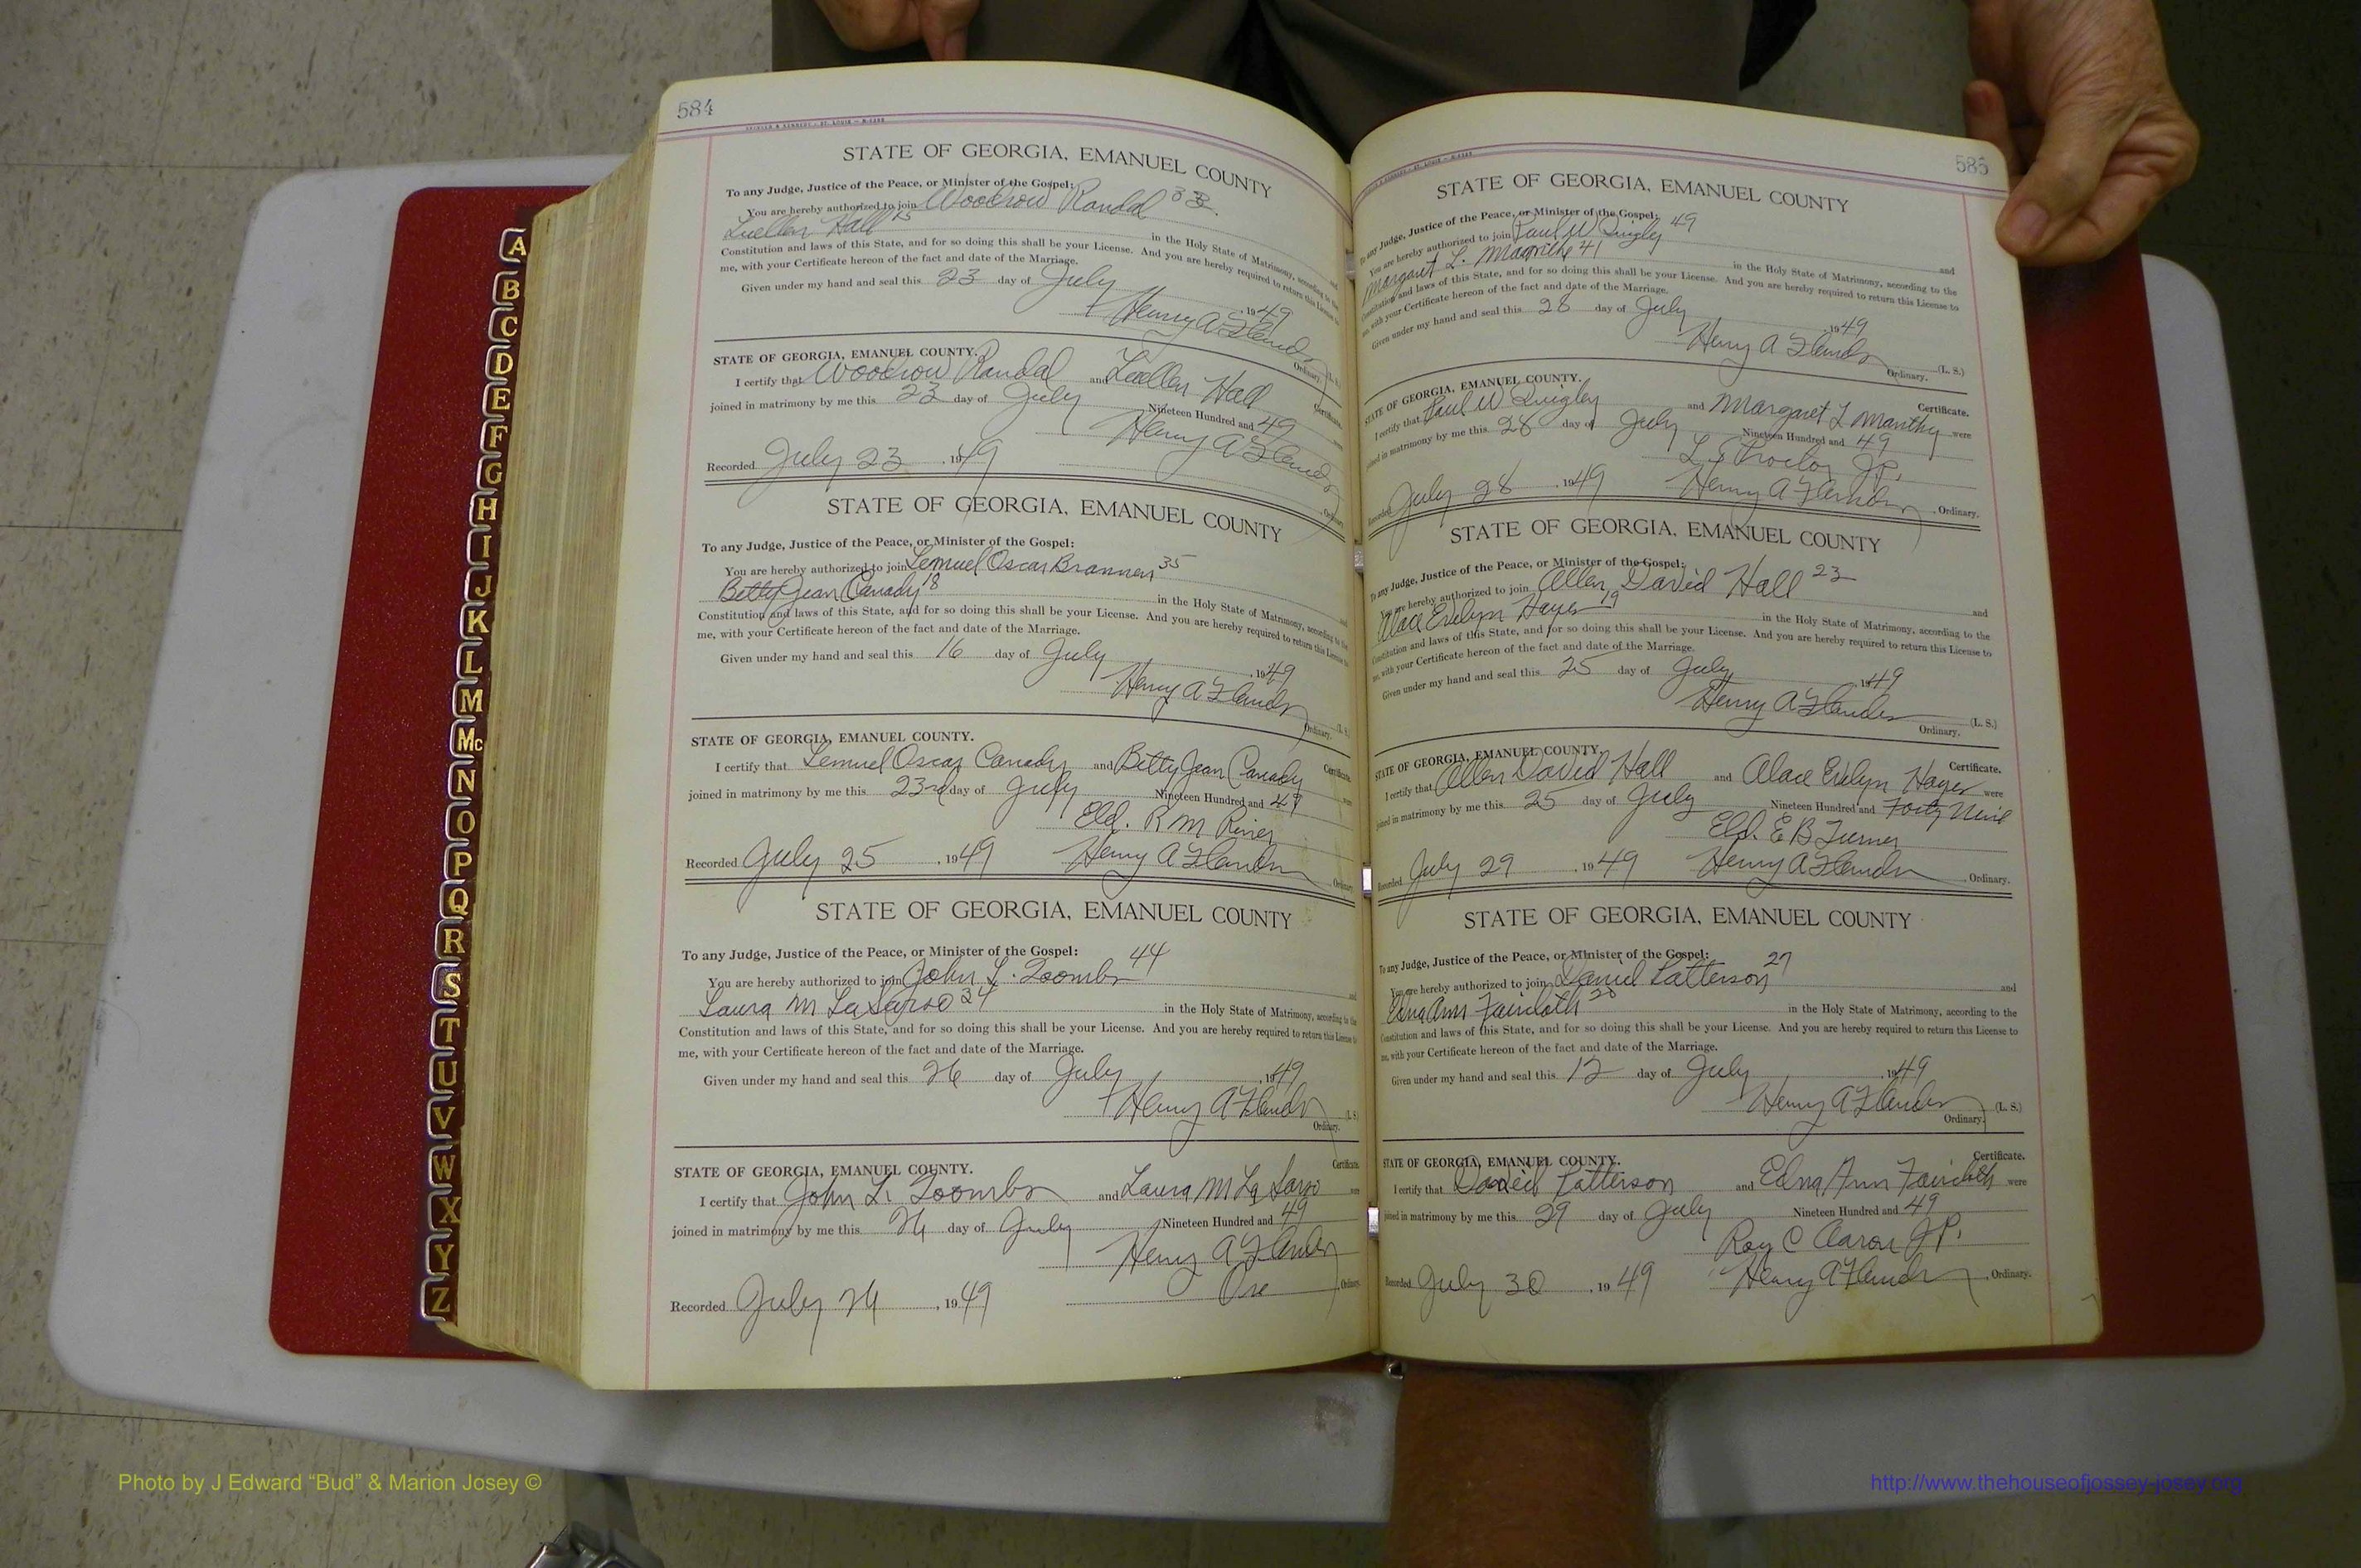 584
STATE OF GEORGIA, EMANUEL COUNTY
To any Judge, Justice of the Peace, or Minister of the Gospel:
You are hereby authorized to join Woodrow Randal 33
Luellen Hall in the Holy State of Matrimony, according to the
Constitution and laws of this State, and for so doing this shall be your License. And you are hereby required to return this License to
me, with your Certificate hereon of the fact and date of the Marriage.
Given under my hand and seal this 23 day of July, 1949
Henry A Flanders
Ordinary. (L. S.)
STATE OF GEORGIA, EMANUEL COUNTY.
Certificate.
I certify that Woodrow Randal and Luellen Hall were
joined in matrimony by me this 23 day of July Nineteen Hundred and 49
Henry A Flanders
Recorded July 23, 1949
Ordinary
STATE OF GEORGIA, EMANUEL COUNTY
To any Judge, Justice of the Peace, or Minister of the Gospel:
You are hereby authorized to join Lemuel Oscar Brannen 35 and
Betty Jean Canady 18 in the Holy State of Matrimony, according to the
Constitution and laws of this State, and for so doing this shall be your License. And you are hereby required to return this License to
me, with your Certificate hereon of the fact and date of the Marriage.
Given under my hand and seal this 16 day of July, 1949
Henry A Flanders
Ordinary. (L. S.)
STATE OF GEORGIA, EMANUEL COUNTY.
Certificate.
I certify that Lemuel Oscar Canady and Betty Jean Canady were
joined in matrimony by me this 23rd day of July Nineteen Hundred and 49
Eld. R M Riner
Recorded July 25, 1949 Henry A Flanders Ordinary
STATE OF GEORGIA, EMANUEL COUNTY
To any Judge, Justice of the Peace, or Minister of the Gospel:
You are hereby authorized to join John L. Toombs 44 and
Laura M 34 in the Holy State of Matrimony, according to the
Constitution and laws of this State, and for so doing this shall be your License. And you are hereby required to return this License to
me, with your Certificate hereon of the fact and date of the Marriage.
Given under my hand and seal this 26 day of July, 1949
Henry A Flanders (L. S.)
Ordinary.
Certificate.
STATE OF GEORGIA, EMANUEL COUNTY.
I certify that John L. Toombs and Laura M were
joined in matrimony by me this 26 day of July Nineteen Hundred and 49
Henry A Flanders
Recorded July 26, 1949 Ordinary
585
STATE OF GEORGIA, EMANUEL COUNTY
To any Judge, Justice of the Peace, or Minister of the Gospel:
You are hereby authorized to join Paul W Quigley 49 and
Margaret L. 41 in the Holy State of Matrimony, according to the
Constitution and laws of this State, and for so doing this shall be your License. And you are hereby required to return this License to
me, with your Certificate hereon of the fact and date of the Marriage.
Given under my hand and seal this 28 day of July, 1949
Henry A Flanders (L. S.)
Ordinary.
STATE OF GEORGIA, EMANUEL COUNTY.
Certificate.
I certify that Paul W Quigley and Margaret L were
joined in matrimony by me this 28 day of July Nineteen Hundred and 49
Proctor JP.
Recorded July 28, 1949 Henry A Flanders, Ordinary.
STATE OF GEORGIA, EMANUEL COUNTY
To any Judge, Justice of the Peace, or Minister of the Gospel:
You are hereby authorized to join Allen David Hall 23 and
Alace Evelyn Hayes 19 in the Holy State of Matrimony, according to the
Constitution and laws of this State, and for so doing this shall be your License. And you are hereby required to return this License to
me, with your Certificate hereon of the fact and date of the Marriage.
Given under my hand and seal this 25 day of July, 1949
Henry A Flanders (L. S.)
Ordinary.
STATE OF GEORGIA, EMANUEL COUNTY.
Certificate.
I certify that Allen David Hall and Alace Evelyn Hayes were
joined in matrimony by me this 25 day of July Nineteen Hundred and Forty Nine
Eld. E B Turner
Recorded July 29, 1949 Henry A Flanders, Ordinary.
STATE OF GEORGIA, EMANUEL COUNTY
To any Judge, Justice of the Peace, or Minister of the Gospel:
You are hereby authorized to join Daniel Patterson 27 and
Edna Ann Faircloth 20 in the Holy State of Matrimony, according to the
Constitution and laws of this State, and for so doing this shall be your License. And you are hereby required to return this License to
me, with your Certificate hereon of the fact and date of the Marriage.
Given under my hand and seal this 12 day of July, 1949
Henry A Flanders (L. S.)
Ordinary.
STATE OF GEORGIA, EMANUEL COUNTY.
Certificate.
I certify that Daniel Patterson and Edna Ann Faircloth were
joined in matrimony by me this 29 day of July Nineteen Hundred and 49
Roy C Aaron JP.
Recorded July 30, 1949 Henry A Flanders, Ordinary.
A
B
C
D
E
F
G
H
I
J
K
L
M
Mc
N
O
P
Q
R
S
T
U
V
W
X
Y
Z
Photo by J Edward “Bud” & Marion Josey ©
http://www.thehouseofjossey-josey.org